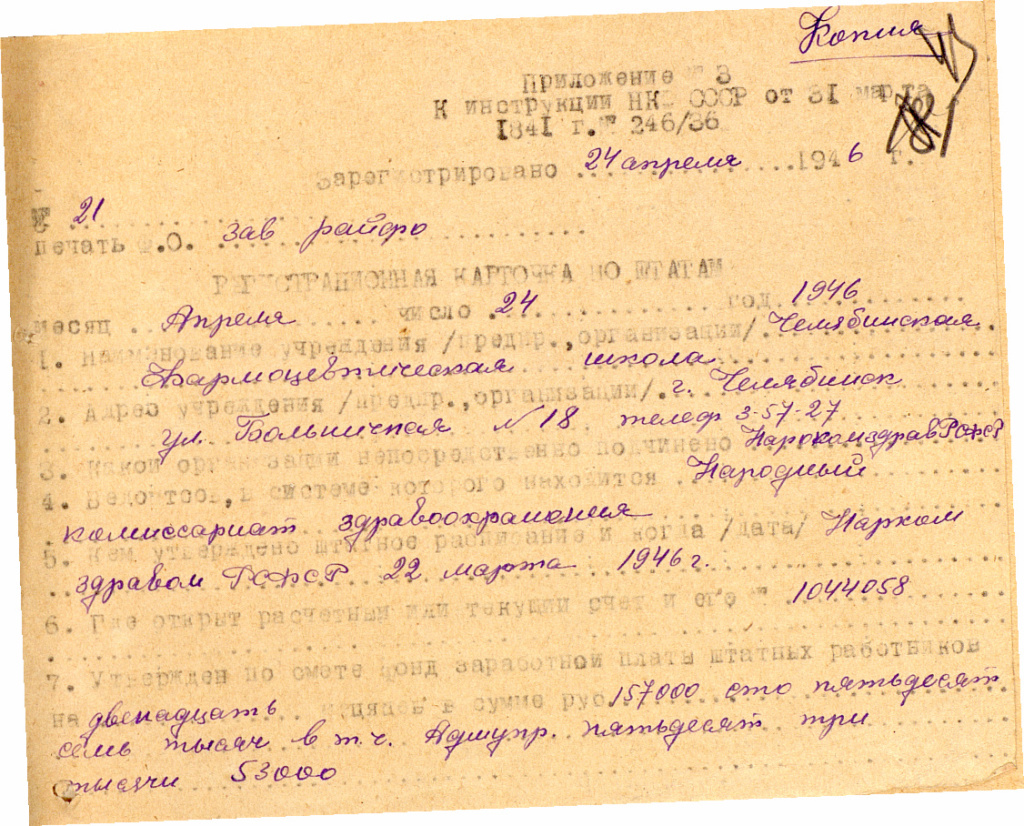 Копия
Приложение № 3
К инструкции НКФ СССР от 31 марта
1841 г.№ 246/36
Зарегистрировано 24 апреля 1946 г.
№ 21
печать Ф.О. зав райфо
РЕГИСТРАЦИОННАЯ КАРТОЧКА ПО ШТАТАМ
месяц Апреля число 24 год 1946
1. Наименование учреждения /предпр.,организации/ Челябинская
Фармоцевтическая школа
2. Адрес учреждения /предпр.,организации/. г. Челябинск
ул. Больничная №18 телеф 3-57-27
3. Какой организации непосредственно подчинено НаркомздравРСФСР
4. Ведомтсов,в системе которого находится Народный
комиссариат здравоохранения
5. Кем утверждено штатное расписание и когда /дата/ Нарком
здравом РСФСР 22 марта 1946 г.
6. Где открыт расчетный или текущий счет и его № 1044058
7. Утвержден по смете фонд заработной платы штатных работников
на двенадцать месяцев в сумме руб. 157000 сто пятьдесят
семь тысяч в т.ч. Адмупр. пятьдесят три
тысячи 53000